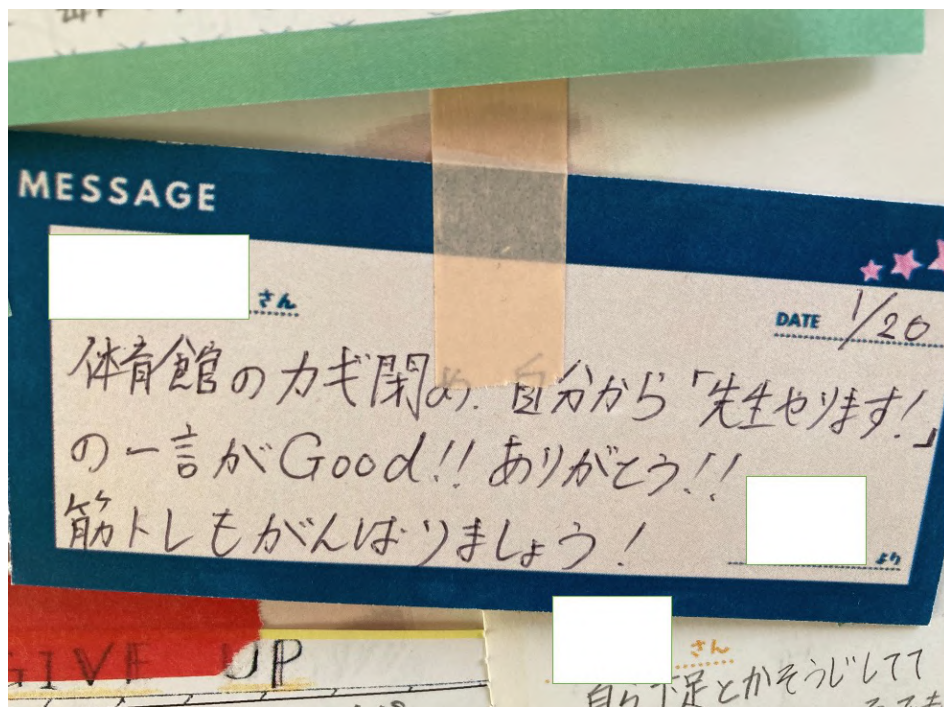 MESSAGE
さん
DATE 1/20
体育館のカギ閉め、自分から「先生やります!」
の一言がGood!! ありがとう!!
筋トレもがんばりましょう!
より
GIVE UP
さん
自ら下足とかそうじしてて